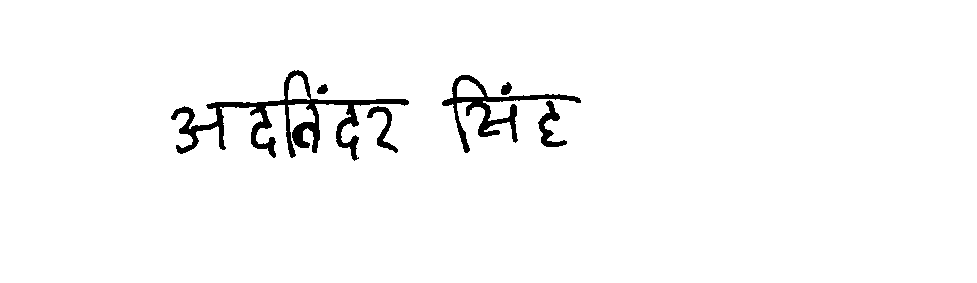 अदतिंदर सिंह